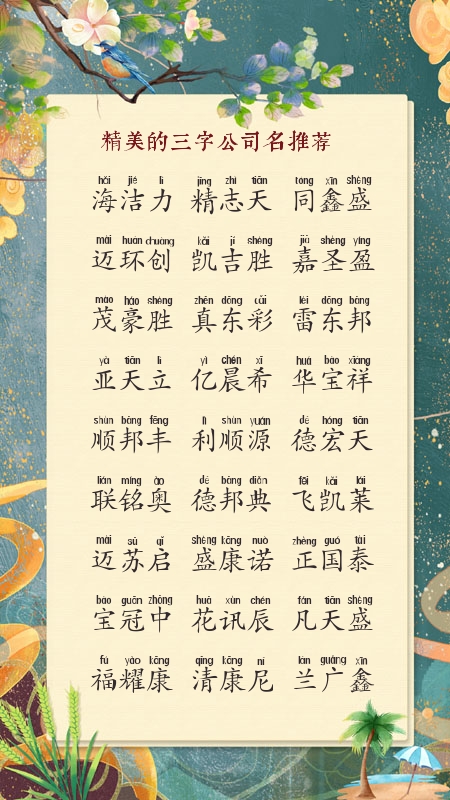 精美的三字公司名推荐
hǎi jié lì jīng zhì tiān tóng xīn shèng
海洁力 精志天 同鑫盛
mài huán chuàng kǎi jí shèng jiā shèng yíng
迈环创 凯吉胜 嘉圣盈
mào háo shèng zhēn dōng cǎi léi dōng bāng
茂豪胜 真东彩 雷东邦
yà tiān lì yì chén xī huá bǎo xiáng
亚天立 亿晨希 华宝祥
shùn bāng fēng lì shùn yuán dé hóng tiān
顺邦丰 利顺源 德宏天
lián míng ào dé bāng diǎn fēi kǎi lái
联铭奥 德邦典 飞凯莱
mài sū qǐ shèng kāng nuò zhèng guó tài
迈苏启 盛康诺 正国泰
bǎo guān zhōng huā xùn chén fán tiān shèng
宝冠中 花讯辰 凡天盛
fú yào kāng qīng kāng ní lán guǎng xīn
福耀康 清康尼 兰广鑫